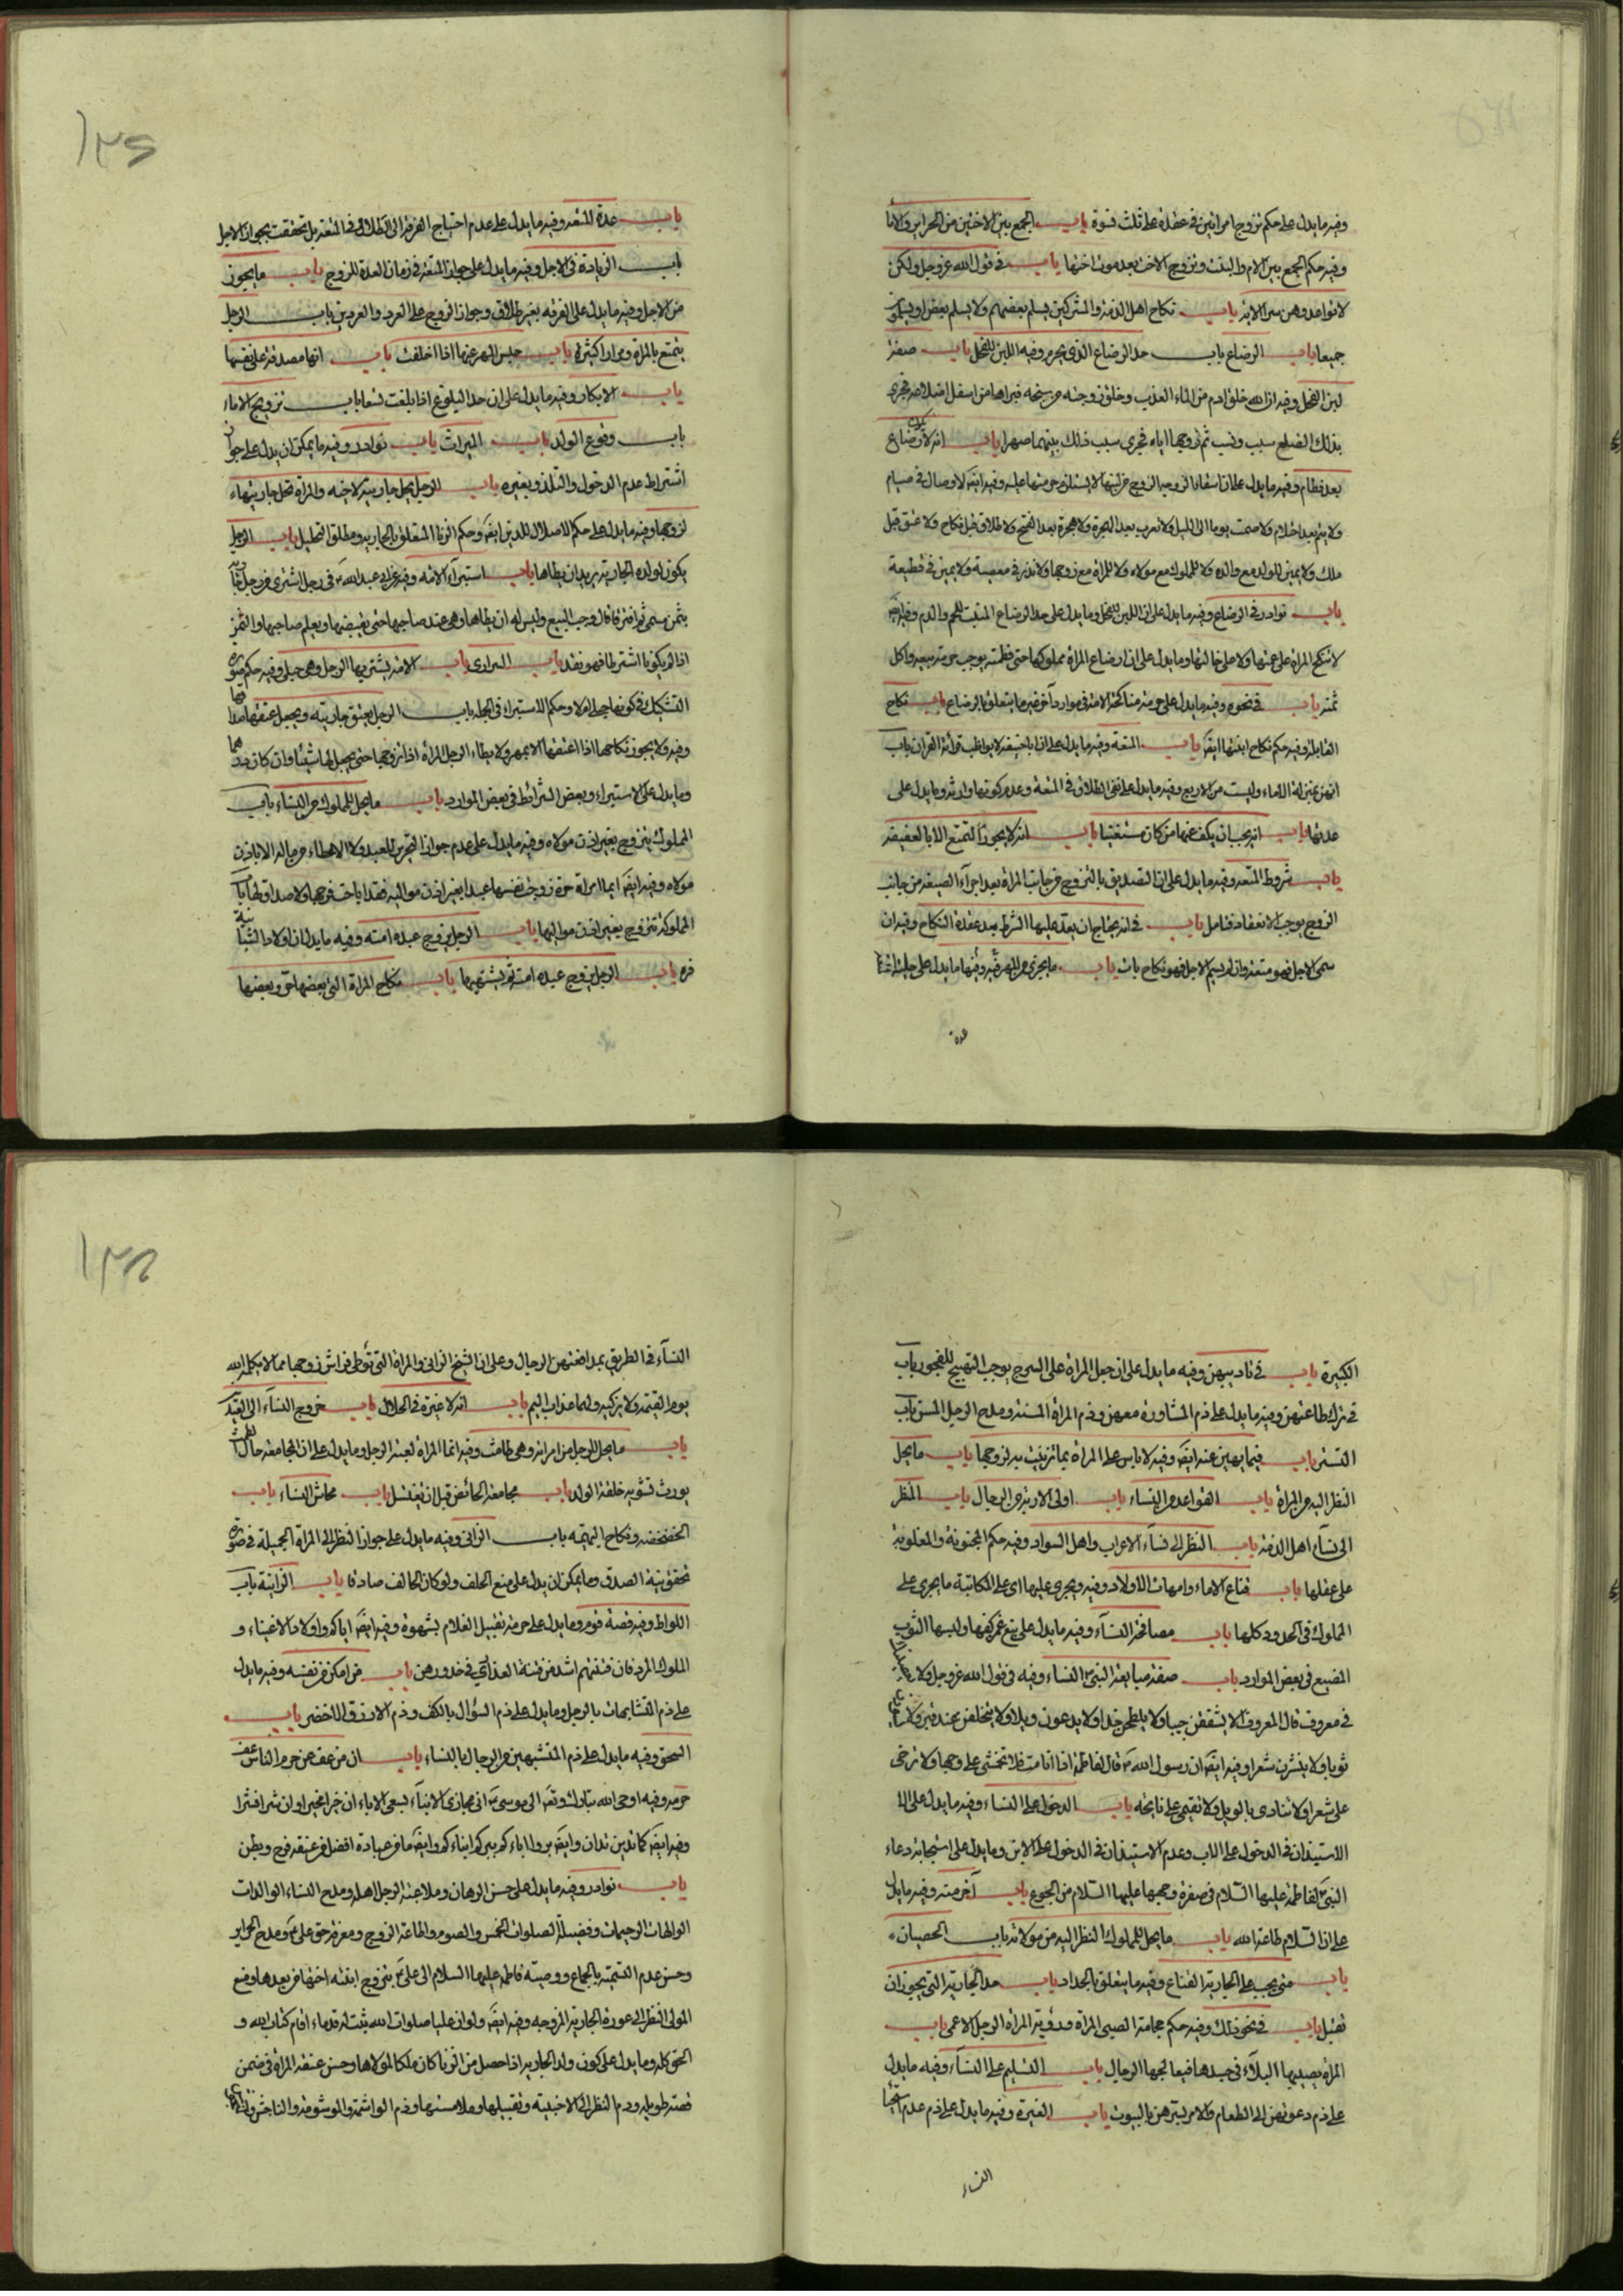 وفيه ما يدل على حكم تزوج امراتين في عقدة على ثلث نسوة باب الجمع بين الاختين من الحراير والاما
وفيه حكم الجمع بين الام والبنت وتزوج الاخت بعد موت اختها باب في قول الله عز وجل ولكن
لا تواعدوهن سرا الاية باب نكاح اهل الذمة والمشركين يسلم بعضهم ولا يسلم بعض او يسلمون
جميعا باب الرضاع باب حد الرضاع الذي يحرم وفيه اللبن للفحل باب صفة
لبن الفحل وفيه ان الله خلق ادم من الماء العذب وخلق زوجته من سنخه فبراها من اسفل اضلاعه فجرى
بذلك الضلع سبب ونسب ثم زوجها اياه فجرى سبب ذلك بينهما صهرا باب انه لا رضاع
بعد فطام وفيه ما يدل على ان اسقاء الزوجه الزوج من لبنها لا يستلزم حرمتها عليه وفيه ايضا لا وصال في صيام
ولا يتم بعد احتلام ولا صمت يوما الى الليل ولا تعرب بعد الهجرة ولا هجرة بعد الفتح ولا طلاق قبل نكاح ولا عتق قبل
ملك ولا يمين للولد مع والده ولا للمملوك مع مولاه ولا للمراة مع زوجها ولا نذر في معصية ولا يمين في قطيعة
باب نوادر في الرضاع وفيه ما يدل على ان اللبن للفحل وما يدل على حد الرضاع المنبت للحم والدم وفيه ايضا
لا تنكح المراة على عمتها ولا على خالتها وما يدل على ان ارضاع المراة مملوكها حتى فطمته يوجب حرمة بيعه واكل
ثمنه باب في نحوه وفيه ما يدل على حرمة مناكحة الامة في موارد اخر غير ما يتعلق بالرضاع باب نكاح
القابلة وفيه حكم نكاح ابنتها ايضا باب المتعة وفيه ما يدل على ان ابا حنيفه لا يواظب قراءة القران باب
انهن بمنزلة الاماء وليست من الاربع وفيه ما يدل على نفي الطلاق في المتعة وعدم كونها وارثه وما يدل على
عدتها باب انه يجب ان يكف عنها من كان مستغنيا باب انه لا يجوز التمتع الا بالعفيفة
باب شروط المتعه وفيه ما يدل على ان التصديق بالتزوج من جانب المراة بعد اجراء الصيغه من جانب
الزوج يوجب الانعقاد فتامل باب في انه يحتاج ان يعقد عليها الشرط بعد عقدة النكاح وفيه ان
سمى الاجل فهو متعة وان لم يسم الاجل فهو نكاح بات باب ما يجزي من المهر فيه وفيها ما يدل على
عدة
باب عدة المتعه وفيه ما يدل على عدم احتياج الفرقة الى الطلاق في المتعة بل تحققت بجواز الاجل
باب الزيادة في الاجل وفيه ما يدل على جواز المتعة في زمان العدة للزوج باب ما يجوز
من الاجل وفيه ما يدل على الفرقه بغير طلاق وجواز الزوج على العرد والعردين باب الرجل
يتمتع بالمراة مرارا كثيرة باب حبس المهر عنها اذا اخلفت باب انها مصدقة على نفسها
باب الابكار وفيه ما يدل على ان حد البلوغ اذا بلغت تسعا باب تزويج الاماء
باب وقوع الولد باب الميراث باب نوادر وفيه ما يمكن ان يدل على جواز
اشتراط عدم الدخول والتلذذ بغيره باب الرجل يحل جاريته لاخيه والمراة تحل جاريتها
لزوجها وفيه ما يدل على حكم الاحلال للذين ايضا وحكم الزنا المتعلق بالجاريه ومطلق التحليل باب الرجل
يكون لولده الجارية يريد ان يطاها باب استبراء الامة وفيه عن ابي عبد الله في رجل اشترى من رجل جارية
بثمن مسمى ثم افترقا قال وجب البيع وليس له ان يطاها وهي عند صاحبها حتى يقبضها ويعلم صاحبها والثمن
اذا لم يكونا اشترطا فهو نقد باب السراري باب الامة يشتريها الرجل وهي حبلى وفيه حكم صورة
التشكيك في كونها حبلى ام لا وحكم الاستبراء في الجمله باب الرجل يعتق جاريته ويجعل عتقها صداقها
وفيه ولا يجوز نكاحها اذا اعتقها الا بمهر ولا يطاء الرجل المراة اذا تزوجها حتى يجعل لها شيئا وان كان درهما
وما يدل على الاستبراء وبعض الشرائط في بعض الموارد باب ما يحل للمملوك من النساء باب
المملوك يتزوج بغير اذن مولاه وفيه ما يدل على عدم جواز التحرير للعبد ولا الاعطاء من ماله الا باذن
مولاه وفيه ايضا ايما امراة حرة زوجت نفسها عبدا بغير اذن مواليه فقد اباحت فرجها ولا صداق لها باب
المملوكة تتزوج بغير اذن مواليها باب الرجل يزوج عبده امته وفيه ما يدل ان اولاد الثبانية
فره باب الرجل يزوج عبده امته ثم يشتهيها باب نكاح المراة التي بعضها حر وبعضها
الكبيرة باب في تاديبهن وفيه ما يدل على ان حمل المراة على السرج يوجب التهييج للفجور باب
في ترك طاعتهن وفيه ما يدل على ذم المشاورة معهن وذم المراة المسنة ومدح الرجل المسن باب
التستر باب فيما نهين عنه ايضا وفيه لا باس على المراة بما تزينت به لزوجها باب ما يحل
النظر اليه من المراة باب القواعد من النساء باب اولي الاربة من الرجال باب النظر
الى نساء اهل الذمة باب النظر الى نساء الاعراب واهل السواد وفيه حكم المجنونة والمغلوبة
على عقلها باب قناع الاماء وامهات الاولاد وفيه ويجري عليها اي على المكاتبة ما يجري على
المملوك في الحدود كلها باب مصافحة النساء وفيه ما يدل على منع غمز كفها ولبسها الثوب
المصبغ في بعض الموارد باب صفة مبايعة النبي النساء وفيه في قول الله عز وجل ولا يعصينك
في معروف قال المعروف الا يشققن جيبا ولا يلطمن خدا ولا يدعون ويلا ولا يتخلفن عند قبر ولا يسودن
ثوبا ولا ينشرن شعرا وفيه ايضا ان رسول الله قال لفاطمة اذا انا مت فلا تخمشي على وجها ولا ترخي
على شعرا ولا تنادي بالويل ولا تقيمي على نائحة باب الدخول على النساء وفيه ما يدل على
الاستيذان في الدخول على الاب وعدم الاستيذان في الدخول على الابن وما يدل على استجابة دعاء
النبي لفاطمة عليها السلام في صفرة وجهها عليها السلام من الجوع باب اخر منه وفيه ما يدل
على ان السلام طاعة الله باب ما يحل للمملوك النظر اليه من مولاته باب الخصيان
باب متى يجب على الجارية القناع وفيه ما يتعلق بالحداد باب حد الجارية التي يجوز ان
تقبل باب في نحو ذلك وفيه حكم حجامة الصبي المراة ورؤية المراة الرجل الاعمى باب
المراة يصيبها البلاء في جسدها فيعالجها الرجال باب التسليم على النساء وفيه ما يدل
على ذم دعوتهن الى الطعام والامر بسترهن بالبيوت باب الغيرة وفيه ما يدل على ذم عدم استحيا
النساء
النساء في الطريق بمدافعتهن الرجال وعلى ان الشيخ الزاني والمراة التي توطى فراش زوجها مما لا يكلم الله
يوم القيمة ولا يزكيه ولهما عذاب اليم باب انه لا غيرة في الحلال باب خروج النساء الى العيد
باب ما يحل للرجل من امراته وهي طامث وفيه انما المراة لعبة الرجل وما يدل على ان المجامعة حال الطمث
يورث تشويه خلقة الولد باب مجامعة الحائض قبل ان تغتسل باب محاش النساء باب
الخضخضه ونكاح البهيمه باب الزاني وفيه ما يدل على جواز النظر الى المراة الجميلة في صورة
تحقق نية الصدق وما يمكن ان يدل على منع الحلف ولو كان الحالف صادقا باب الزانية باب
اللواط وفيه قصة قوم وما يدل على حرمة تقبيل الغلام بشهوة وفيه ايضا اياكم واولاد الاغنياء و
الملوك المرد فان فتنتهم اشد من فتنة العذاري في خدورهن باب من امكن من نفسه وفيه ما يدل
على ذم المتشابهات بالرجل وما يدل على ذم السؤال بالكف وذم الازرق الاخضر باب
السحق وفيه ما يدل على ذم المتشبهين من الرجال بالنساء باب ان من عف عن حرم الناس عف
حرمه وفيه اوحى الله تبارك وتعالى الى موسى اني مجازي الابناء بسعي الاباء ان خيرا فخيرا وان شرا فشرا
وفيه ايضا كما تدين تدان وايضا بروا اباءكم يبركم ابناءكم وايضا ما من عبادة افضل من عفة فرج وبطن
باب نوادر وفيه ما يدل على حسن الرهان وملاعبة الرجل اهله ومدح النساء الوالدات
الوالهات الرحيمات وفضيلة الصلوات الخمس والصوم واطاعة الزوج ومعرفة حق على ومدح الحراير
وحسن عدم التسمية بالجماع ووصية فاطمة عليها السلام الى على بتزوج ابنة اختها من بعدها ومنع
المولى النظر الى عورة الجارية المزوجه وفيه ايضا ولو ان عليا صلوات الله ثبت له قدماء اقام كتاب الله و
الحق كله وما يدل على كون ولد الجارية اذا حصل من الزنا كان ملكا لمولاها وحسن عتقه المراة في ضمن
قصة طويله وذم النظر الى الاجنبية وتقبيلها وملامستها وذم الواشمة والموشومة والناجش